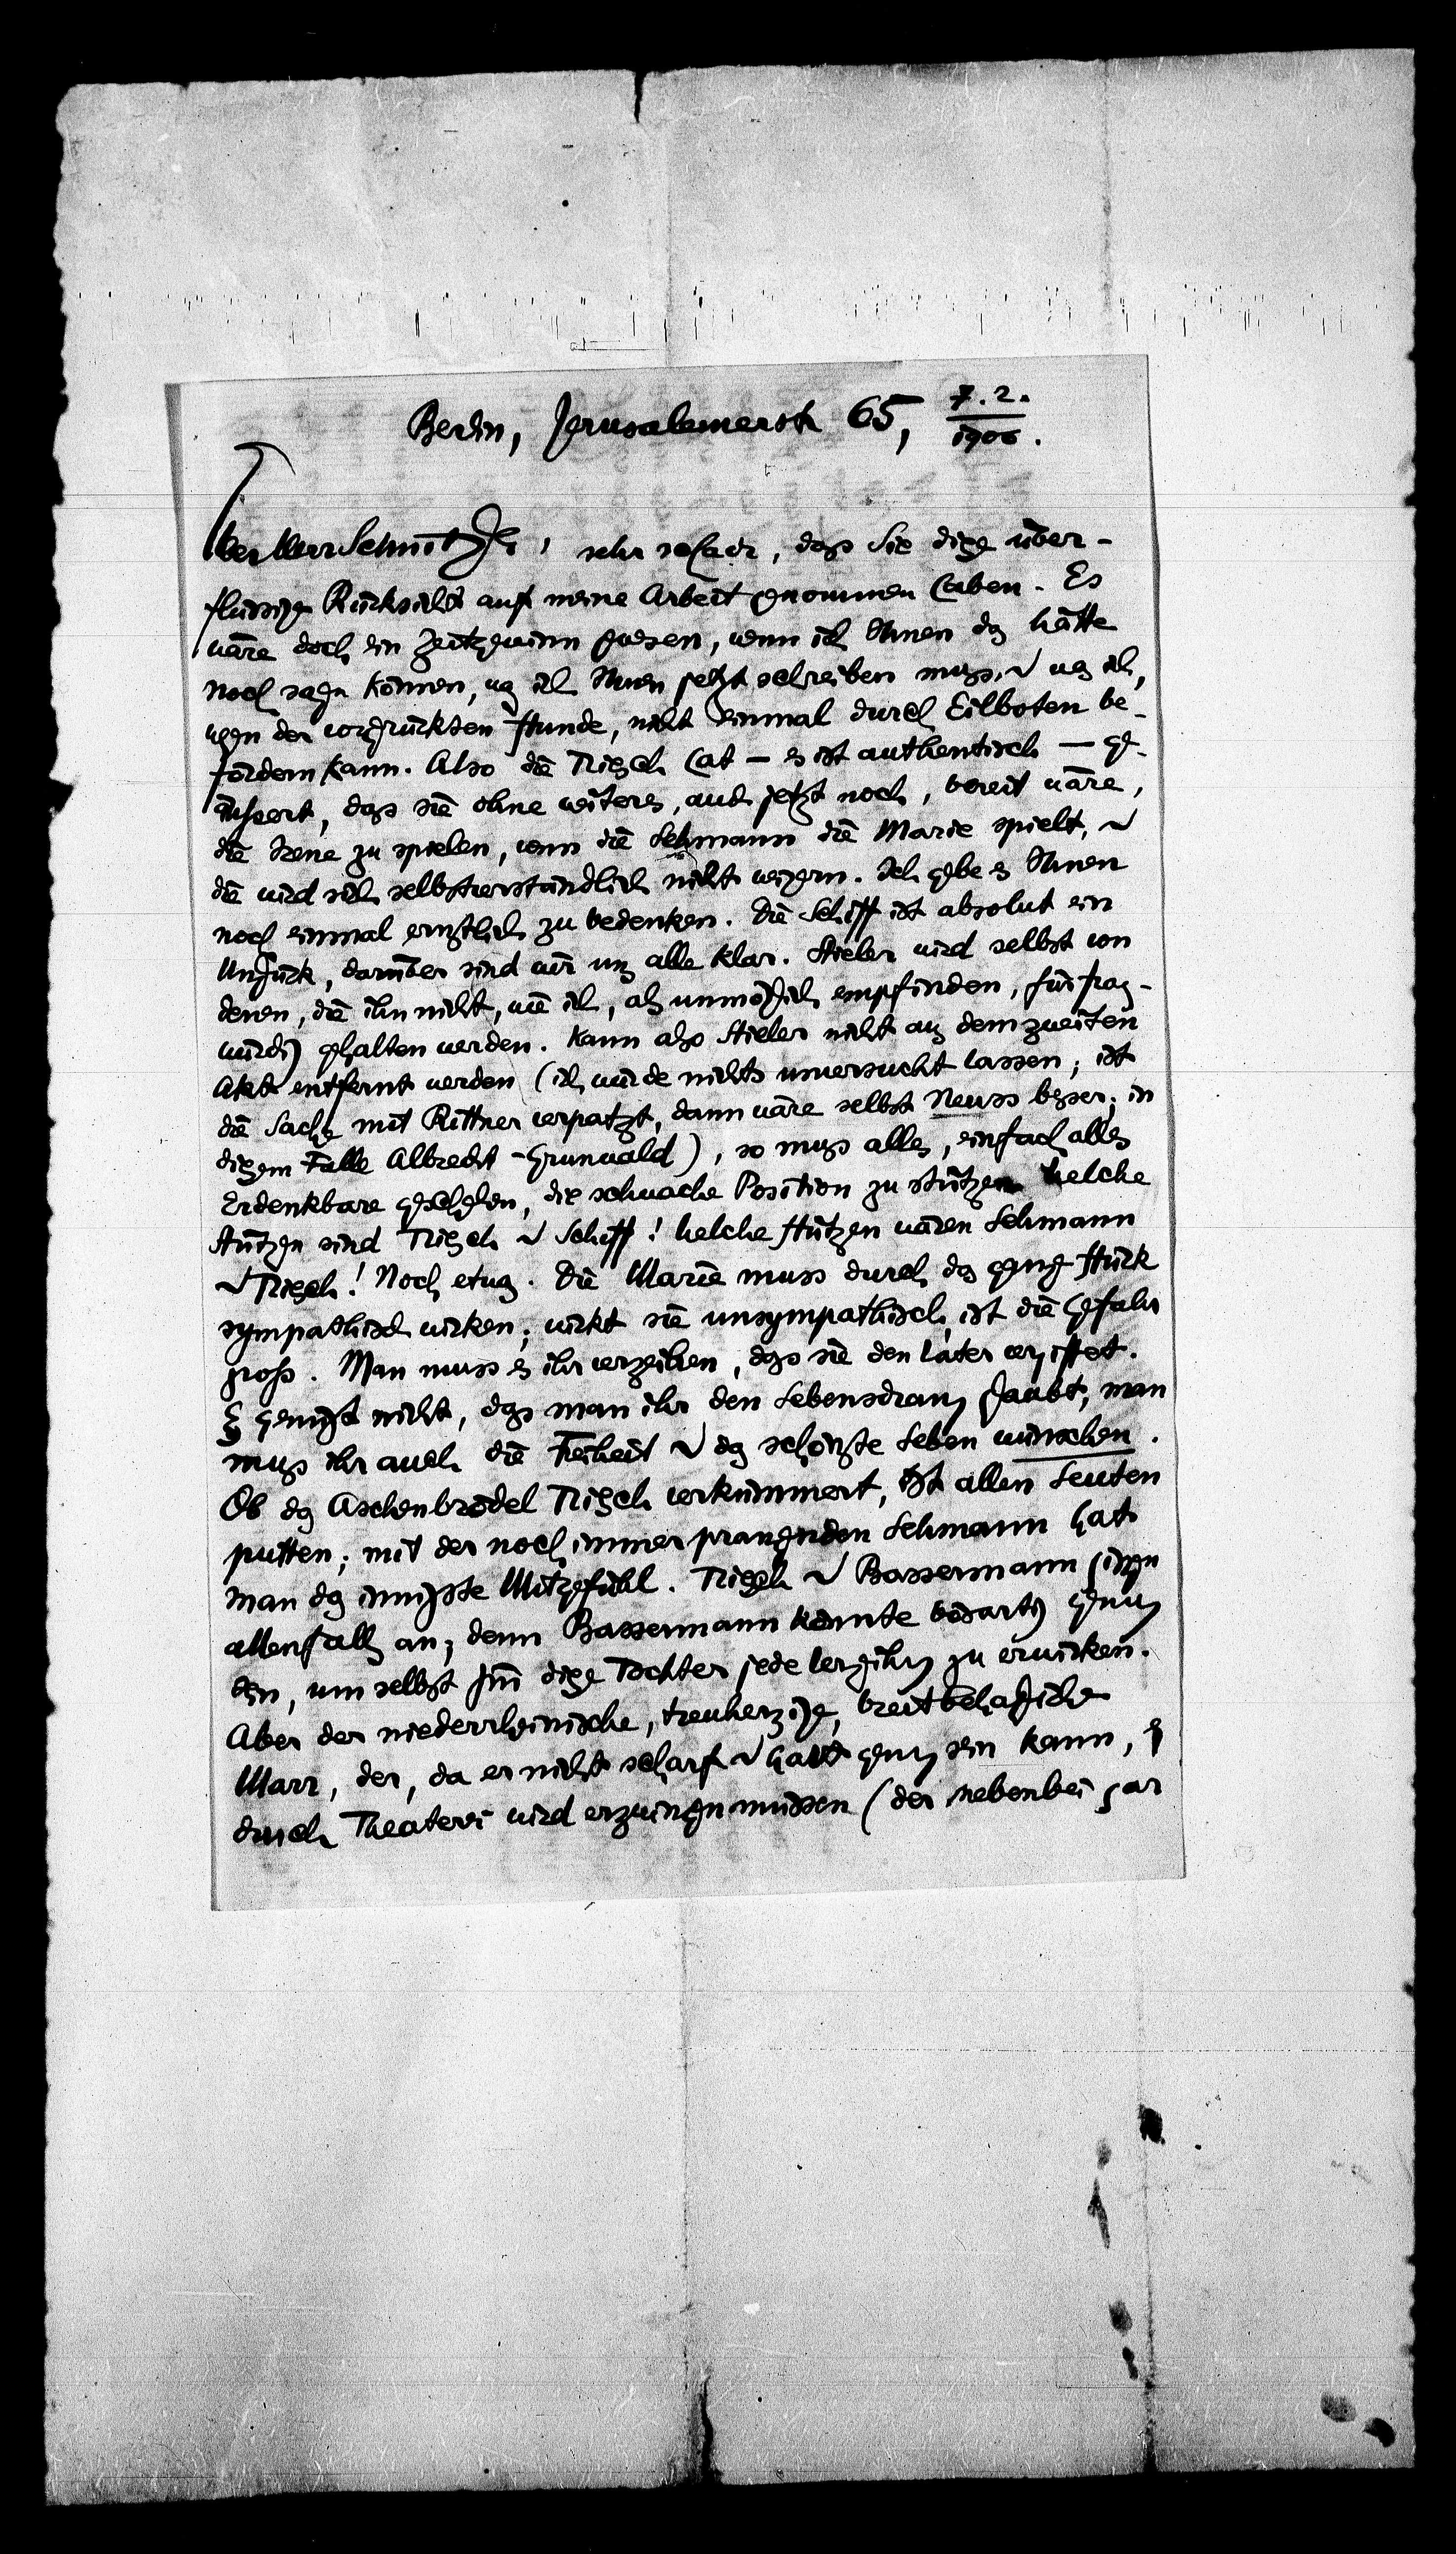 Berlin, Jerusalemerstr 65, 7. 2. 1906.
lieber Herr Schnitzler, sehr schade, dass Sie diese über-
flüssige Rücksicht auf meine Arbeit genommen haben. Es
wäre doch ein Zeitgewinn gewesen, wenn ich Ihnen das hätte
noch sagen können, was ich Ihnen jetzt schreiben muss, u was ich,
wegen der vorgerückten Stunde, nicht einmal durch Eilboten be-
fördern kann. Also die Triesch hat – es ist authentisch – ge-
äussert, dass sie ohne weiteres, auch jetzt noch, bereit wäre,
die Irene zu spielen, wenn die Lehmann die Marie spielt, u
die wird sich selbstverständlich nicht weigern. Ich gebe es Ihnen
noch einmal ernstlich zu bedenken. Die Schiff ist absolut ein
Unglück, darüber sind wir uns alle klar. Stieler wird selbst von
denen, die ihn nicht, wie ich, als unmöglich empfinden, für frag-
würdig gehalten werden. Kann also Stieler nicht aus dem zweiten
Akt entfernt werden (ich würde nichts unversucht lassen; ist
die Sache mit Rittner verpatzt, dann wäre selbst Neuss besser; in
diesem Falle Albrecht-Grunwald), so muss alles, einfach alles
Erdenkbare geschehen, die schwache Position zu stützen. Welche
Stützen sind Triesch u Schiff! Welche Stützen wären Lehmann
u Triesch! Noch etwas. Die Marie muss durch das ganze Stück
sympathisch wirken; wirkt sie unsympathisch, ist die Gefahr
gross. Man muss es ihr verzeihen, dass sie den Vater vergiftet.
Es genügt nicht, dass man ihr den Lebensdrang glaubt, man
muss ihr auch die Freiheit u das schönste Leben wünschen.
Ob das Aschenbrödel Triesch verkümmert, ist allen Leuten
putten; mit der noch immer prangenden Lehmann hat
man das innigste Mitgefühl. Triesch u Bassermann gingen
allenfalls an; denn Bassermann könnte bösartig genug
sein, um selbst für diese Tochter jede Vergebung zu erwirken.
Aber der niederrheinische, treuherzige, breitbehagliche
Marr, der, da er nicht scharf u hart genug sein kann, es
durch Theaterei wird erzwingen müssen (der nebenbei gar